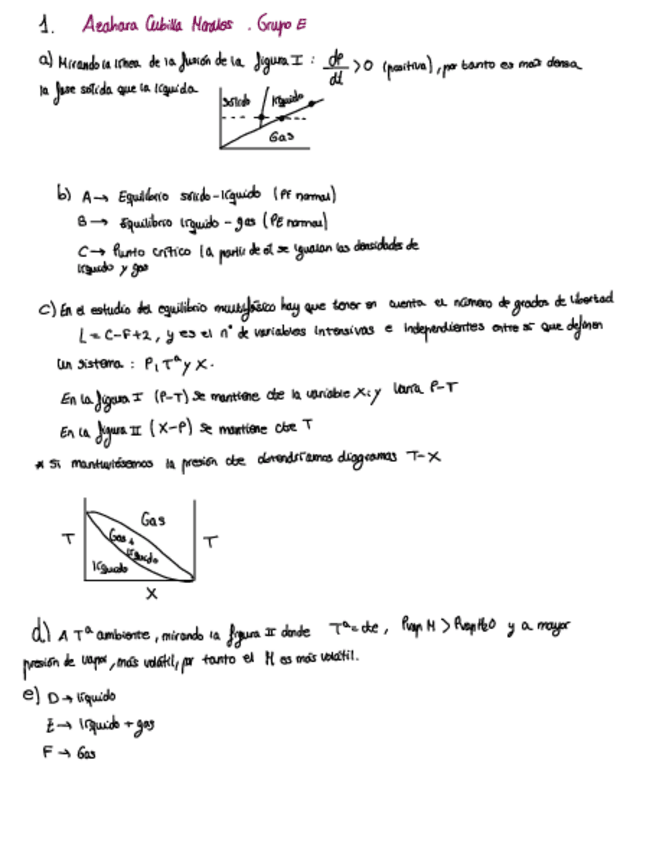 1. Azahara Cubilla Morales . Grupo E
a) Mirando la línea de la fusión de la figura I : dP/dt >0 (positiva), por tanto es más densa
la fase sólida que la líquida.
sólido líquido
Gas
b) A → Equilibrio sólido-líquido (PF normal)
B → Equilibrio líquido - gas (PE normal)
C → Punto crítico (a partir de él se igualan las densidades de
líquido y gas
c) En el estudio del equilibrio multifásico hay que tener en cuenta el número de grados de libertad
L = C-F+2, y es el nº de variables intensivas e independientes entre sí que definen
un sistema : P, Tª y X.
En la figura I (P-T) se mantiene cte la variable X, y varía P-T
En la figura II (X-P) se mantiene cte T
* Si mantuviésemos la presión cte obtendríamos diagramas T-X
Gas
T Gas + líquido T
líquido
X
d) A Tª ambiente, mirando la figura II donde Tª= cte, Pvap M > Pvap H2O y a mayor
presión de vapor, más volátil, por tanto el M es más volátil.
e) D → líquido
E → líquido + gas
F → Gas